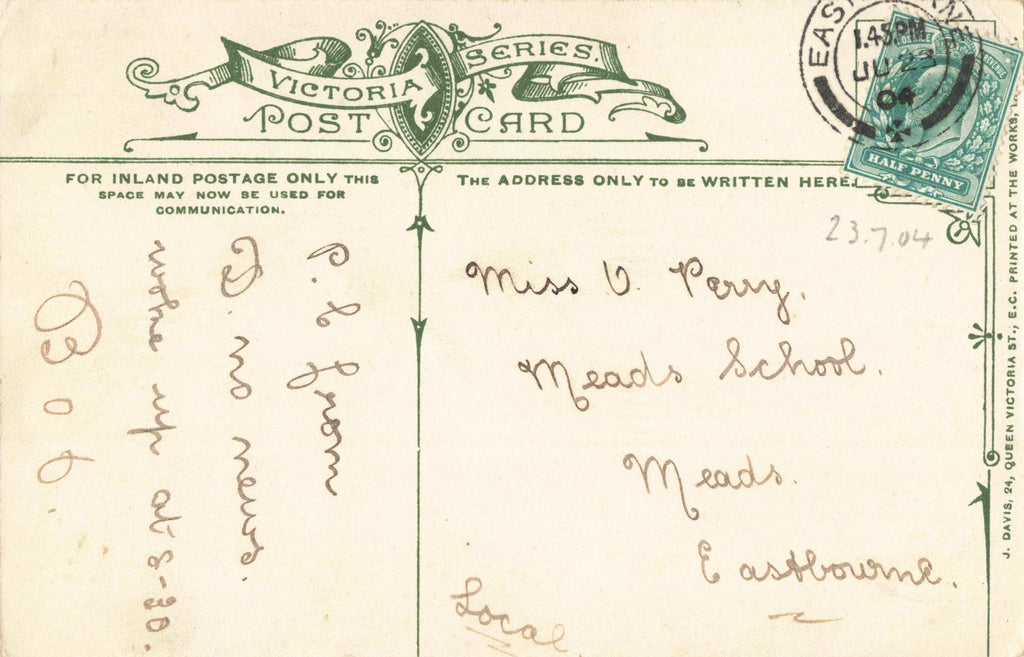 VICTORIA SERIES.
POST CARD
FOR INLAND POSTAGE ONLY THIS
SPACE MAY NOW BE USED FOR
COMMUNICATION.
THE ADDRESS ONLY TO BE WRITTEN HERE.
1.45PM
JU 23
04
HALF PENNY
23.7.04
P. C from
B. no news.
woke up at 8-30.
Bob
Miss V. Perry.
Meads School.
Meads.
Eastbourne.
Local
J. DAVIS, 24, QUEEN VICTORIA ST., E.C. PRINTED AT THE WORKS,